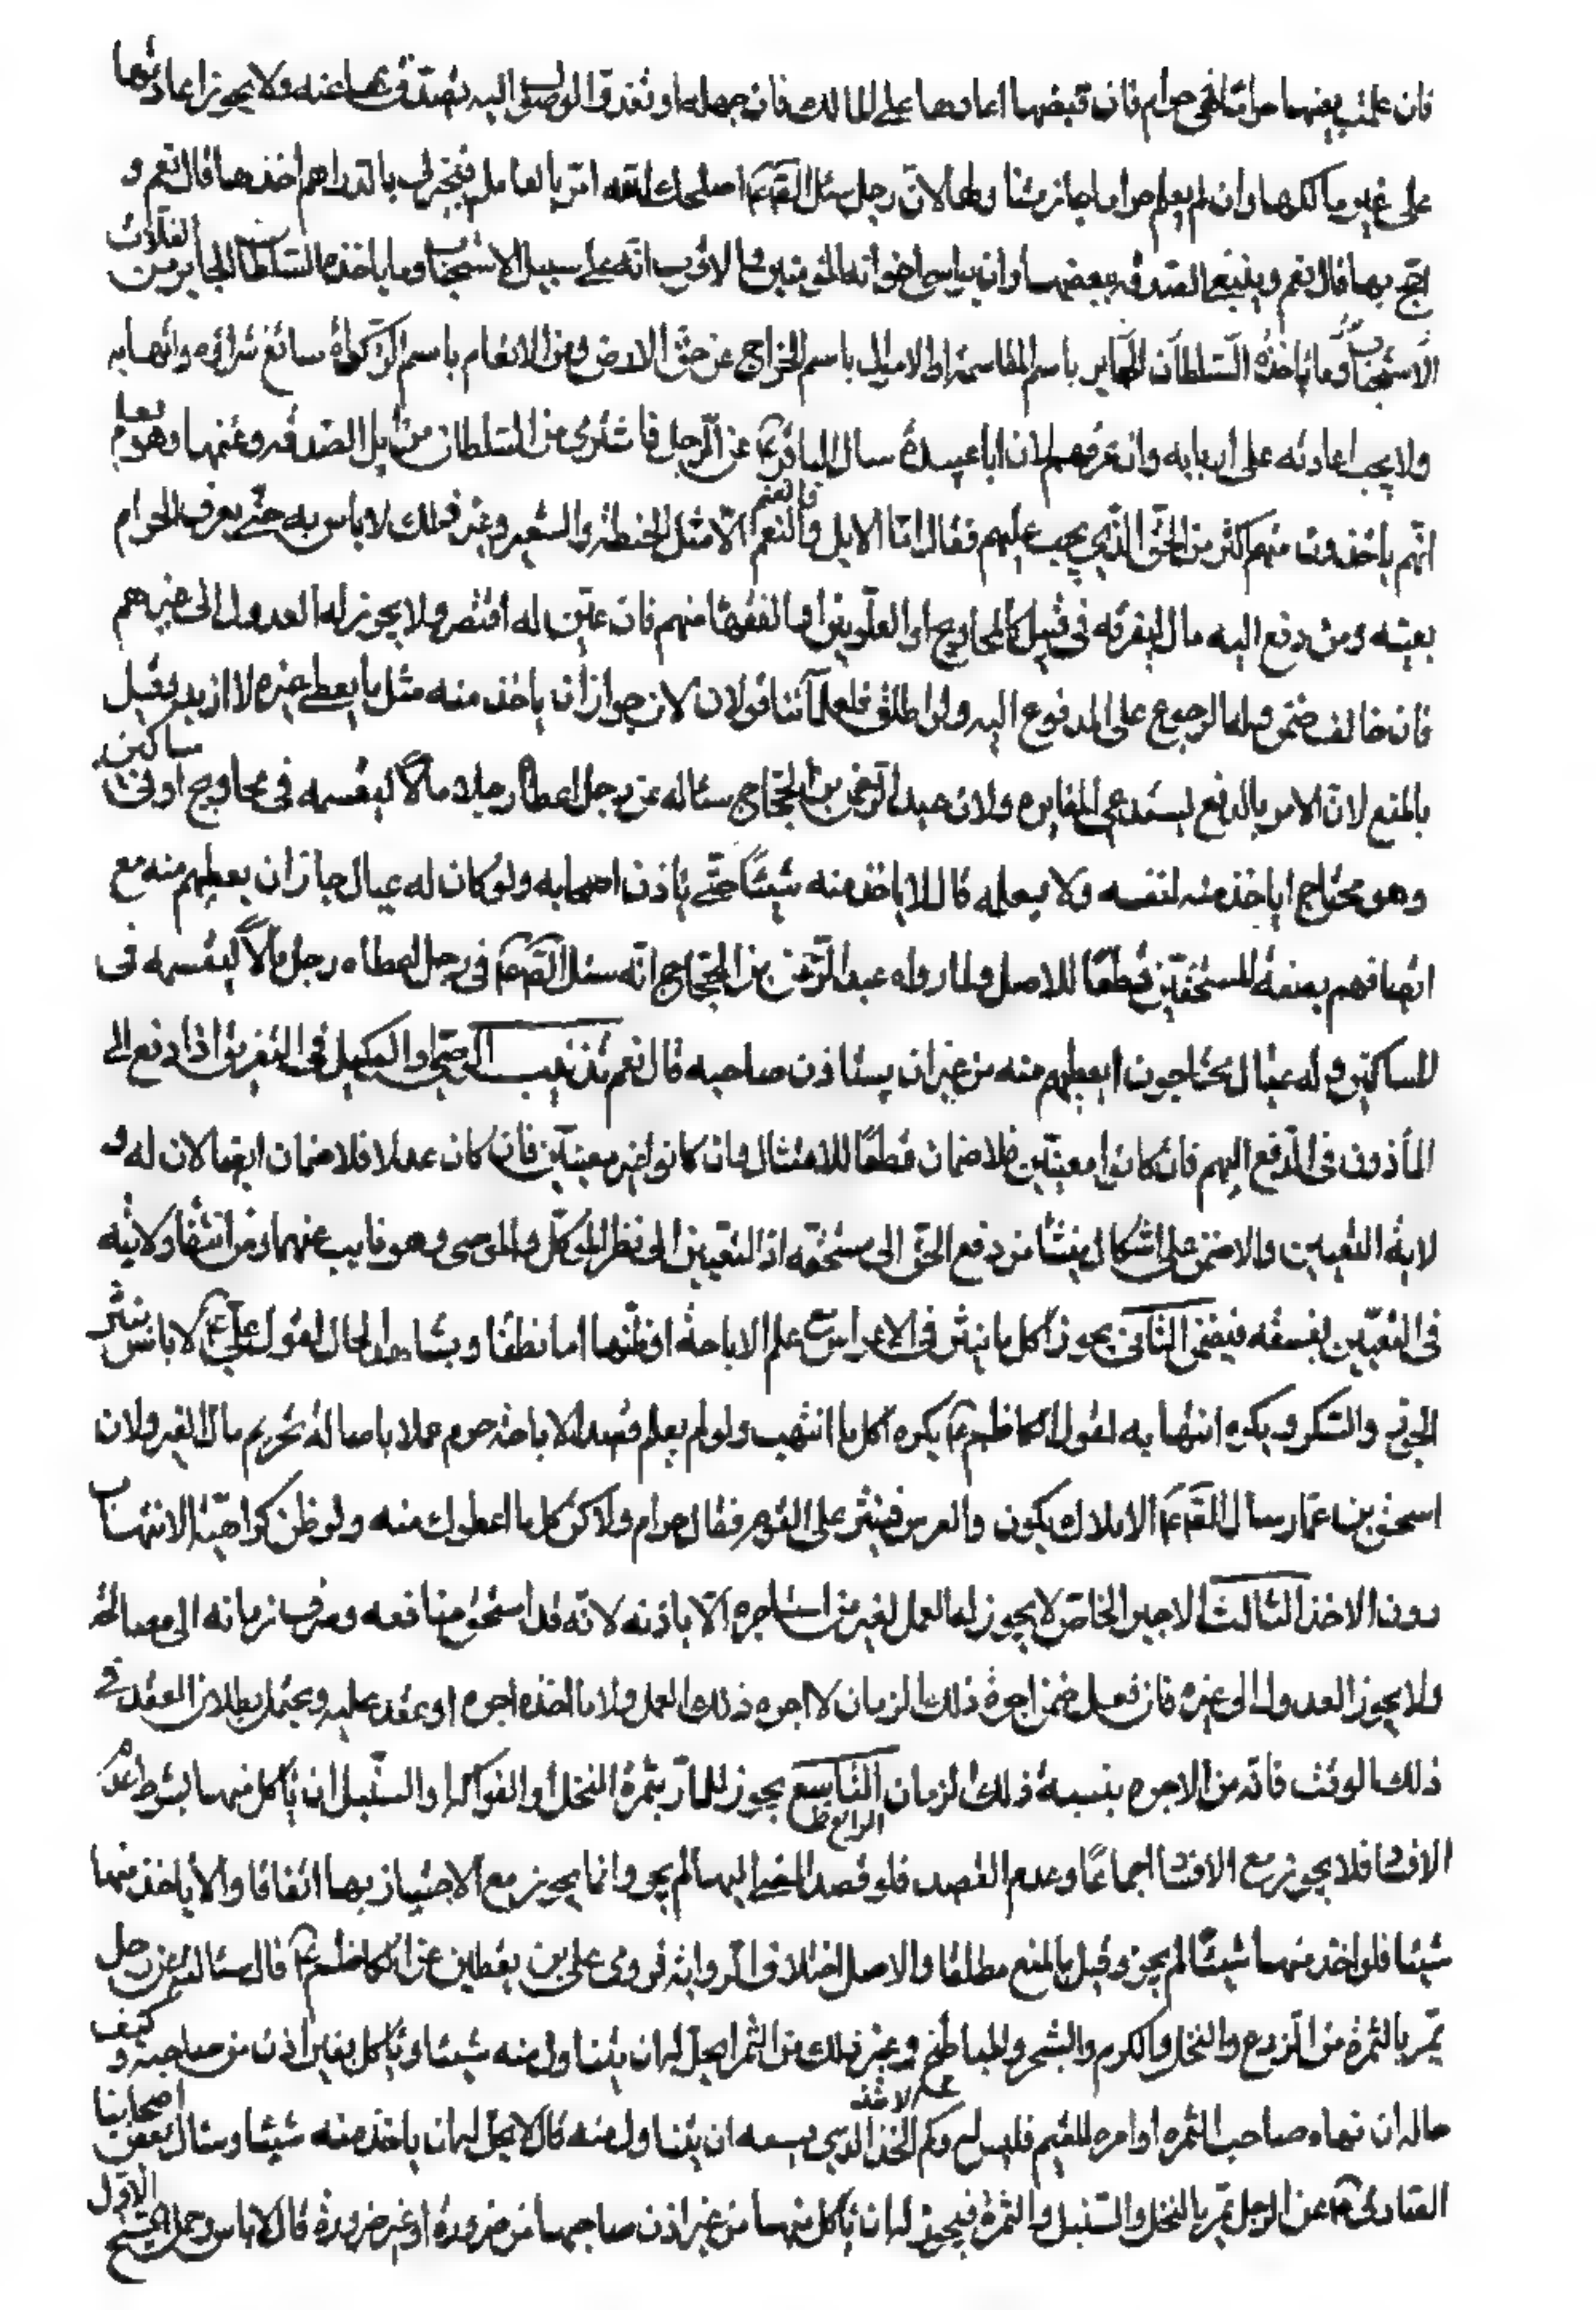 فان علمت بعينها حراما فهى حرام فان قبضها اعادها على المالك فان جهله او تعذر الوصول اليه تصدق بها عنه ولا يجوز اعادتها
على غير مالكها وان لم يعلم حراما جاز تناولها لان رجل سئل الصّم اصلحك الله امرّ بالعامل فيجيزنى بالدراهم اخذها قال نعم و
احج بها قال نعم وينبغى الصدقه ببعضها وان يواسى اخوانه المؤمنين والاقرب انه على سبيل الاستحباب وما ياخذه السلطان الجاير من الغلات
الاستحباب وما ياخذه السلطان الجاير باسم المقاسمة او الاموال باسم الخراج عن حق الارض ومن الانعام باسم الزكواة سائغ شرائه واتهابه
ولا يجب اعادته على اربابه وان عرفهم لان ابا عبيدة سال الباقر ع عن الرجل فاشترى من السلطان من ابل الصدقه وغنمها وهو يعلم
انهم ياخذون منهم اكثر من الحق الذي يجب عليهم فقال ما الابل والغنم الا مثل الحنطة والشعير وغير ذلك لا باس به حتى يعرف الحرام
بعينه ومن دفع اليه مال ليفرقه فى قبيل كالمحاويج او العلويين او الفقهاء منهم فان عين له اقتصر ولا يجوز له العدول الى غيرهم
فان خالف ضمن وله الرجوع على المدفوع اليه ولو اطلق فلعلمآئنا قولان لان جواز ان ياخذ منه مثل ما يعطى غيره لا ازيد وقيل
بالمنع لان الامر بالدفع يستدعى المغايره ولان عبد الرحمن بن الحجاج سئاله عن رجل اعطاه رجلا مالا ليقسمه فى محاويج او فى مساكين
وهو محتاج اياخذ منه لنفسه ولا يعلمه قال لا ياخذ منه شيئا حتى ياذن اصحابه ولو كان له عيال جاز ان يعطيهم منه مع
اتصافهم بصفة المستحقين قطعا للاصل ولما رواه عبد الرحمن بن الحجاج انه سئل الصّم فى رجل اعطاه رجل مالا ليقسمه فى
المساكين وله عيال يحتاجون ايعطيهم منه من غير ان يستاذن صاحبه قال نعم تذنيب الوصى والوكيل فى التفريق اذا دفع الى
المأذون فى الدفع اليهم فان كانوا معينين فلا ضمان قطعا للامتثال وان كانوا غير معينين فان كان عدلا فلا ضمان ايضا لان له و
لاية التعيين والا ضمن على اشكال ينشأ من دفع الحق الى مستحقه اذ التعيين الى نظر الموكل والموصى وهو نايب عنهما ومن انتفاء ولايته
فى التعيين بفسقه فيضمن الثانى يجوز اكل ما ينثر فى الاعراس مع علم الاباحة او ظنها اما نطقا وبشاهد الحال لقول على ع لا باس بنثر
الجوز والسكر ويكره انتهابه لقول الكاظم ع يكره اكل ما انتهب ولو لم يعلم قصد الاباحة حرم عملا باصالة تحريم مال الغير ولان
اسحق بن عمار سال الصّم الاملاك يكون والعرس فينثر على القوم فقال حرام ولاكن كل ما اعطوك منه ولو ظن كراهية الانتهاب
دون الاخذ الثالث الاجير الخاص لا يجوز له العمل لغير من استاجره الا باذنه لانه قد استحق منافعه وصرف زمانه الى مصالحه
ولا يجوز العدول الى غيره فان فعل ضمن اجرة ذلك الزمان لا اجره ذلك العمل ولا ما اخذه اجره او عقد عليه ويحتمل بطلان العقد فى
ذلك الوقت فاته من الاجره بنسبة ذلك الزمان التاسع الرابع ظ يجوز للمار بثمرة النخل او الفواكه او السنبل ان ياكل منها بشرط عدم
الافساد فلا يجوز مع الافساد اجماعا وعدم القصد فلو قصد المضى اليها لم يجز وانما يجوز مع الاجتياز بها اتفاقا والا ياخذ منها
شيئا فلو اخذ منها شيئا لم يجز وقيل بالمنع مطلقا والاصل اختلاف الرواية فروى على بن يقطين عن الكاظم ع قال سئالته عن رجل
يمر بالثمرة من الزرع والنخل والكرم والشجر والمباطخ وغير ذلك من الثمر ايحل له ان يتناول منه شيئا وياكل بغير اذن من صاحبه وكيف
حاله ان نهاه صاحب الثمره او امره القيم فليس له وكم الحد الذي يسعه ان يتناول منه قال لا يحل له ان ياخذ منه شيئا وسئال بعض اصحابنا
الصادق ع عن الرجل يمر بالنخل والسنبل والثمرة فيجوز له ان ياكل منها من غير اذن صاحبها من ضرورة او غير ضرورة قال لا باس وحمل الشيخ الاول